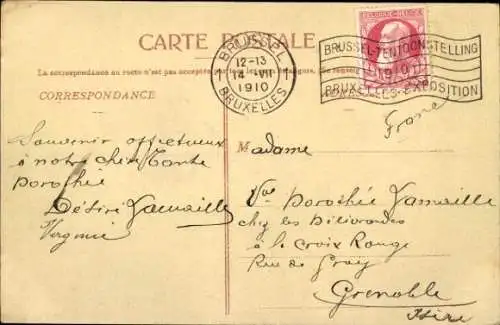 CARTE POSTALE
La correspondance au recto n'est pas acceptée par tous les pays étrangers. (Se renseigner
CORRESPONDANCE
BRUSSEL
12-13
4-VII
1910
BRUXELLES
BELGIQUE-BELGIË
BRUSSEL-TENTOONSTELLING
1910
BRUXELLES-EXPOSITION
France
Souvenir affectueux
à notre chère tante
Dorothée
Désiré Jamaille
Virginie
Madame
Vve Dorothée Jamaille
chez les
à la Croix Rouge
Rue de Gray
Grenoble
Isère